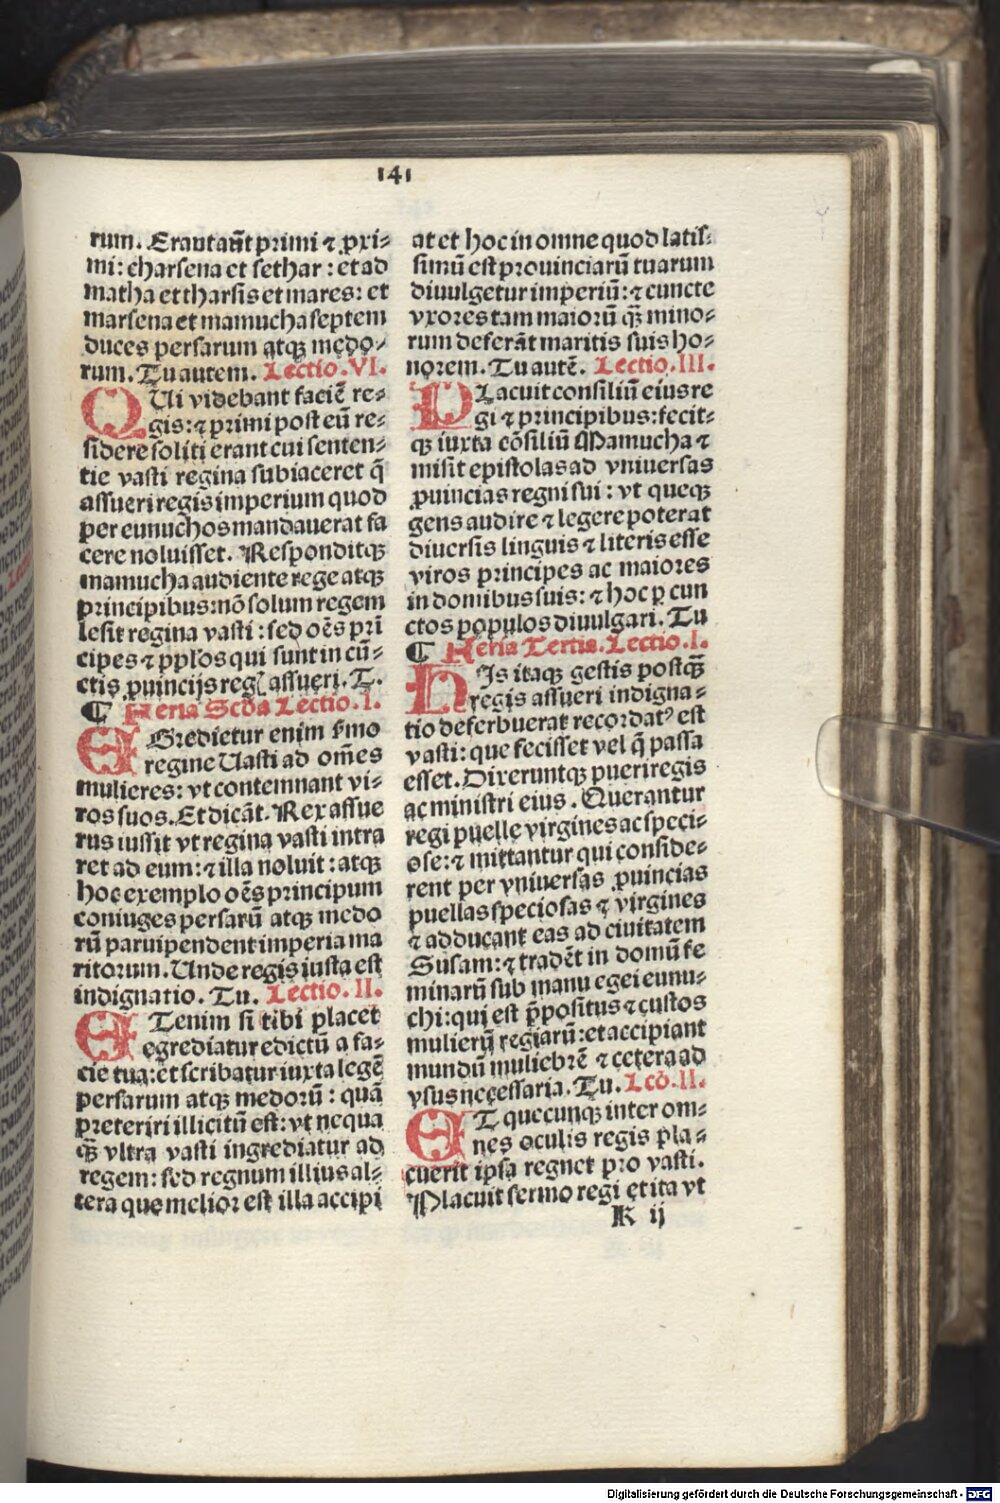 141
rum. Erant aūt primi ⁊ ꝓxi⸗
mi: charsena et sethar : et ad
matha et tharsis et mares: et
marsena et mamucha septem
duces persarum atqꝫ medo⸗
rum. Tu autem. Lectio. VI.
QUi videbant faciē re⸗
gis: ⁊ primi post eū re⸗
sidere soliti erant cui senten⸗
tie vasti regina subiaceret q̄
assueri regis imperium quod
per eunuchos mandauerat fa
cere noluisset. Responditqꝫ
mamucha audiente rege atqꝫ
principibus: nō solum regem
lesit regina vasti : sed oēs prī
cipes ⁊ pplos qui sunt in cū⸗
ctis ꝓuincijs regꝭ assueri. T.
¶ Feria Scd̄a Lectio. I.
EGredietur enim ẜmo
regine Uasti ad om̄es
mulieres: vt contemnant vi⸗
ros suos. Et dicāt. Rex assue
rus iussit vt regina vasti intra
ret ad eum: ⁊ illa noluit : atqꝫ
hoc exemplo oēs principum
coniuges persarū atqꝫ medo
rū paruipendent imperia ma
ritorum. Unde regis iusta est
indignatio. Tu. Lectio. II.
ETenim si tibi placet
egrediatur edictū a fa⸗
cie tua: et scribatur iuxta legē
persarum atqꝫ medorū : quā
preteriri illicitū est: vt nequa
qꝫ̄ vltra vasti ingrediatur ad
regem: sed regnum illius al⸗
tera que melior est illa accipi
at et hoc in omne quod latis⸗
simū est prouinciarū tuarum
diuulgetur imperiū: ⁊ cuncte
vxores tam maiorū qꝫ̄ mino⸗
rum deferāt maritis suis ho⸗
norem. Tu autē. Lectio. III.
PLacuit consiliū eius re
gi ⁊ principibus: fecit⸗
qꝫ iuxta cōsiliū Mamucha ⁊
misit epistolas ad vniuersas
ꝓuincias regni sui : vt queqꝫ
gens audire ⁊ legere poterat
diuersis linguis ⁊ literis esse
viros principes ac maiores
in domibus suis: ⁊ hoc ꝑ cun
ctos populos diuulgari. Tu
¶ Feria Tertia. Lectio. I.
HIs itaqꝫ gestis postqꝫ̄
regis assueri indigna⸗
tio deferbuerat recordatꝰ est
vasti: que fecisset vel q̄ passa
esset. Dixeruntqꝫ pueri regis
ac ministri eius . Querantur
regi puelle virgines ac speci⸗
ose: ⁊ mittantur qui conside⸗
rent per vniuersas ꝓuincias
puellas speciosas ⁊ virgines
⁊ adducant eas ad ciuitatem
Susam: ⁊ tradēt in domū fe
minarū sub manu egei eunu⸗
chi: qui est p̄positus ⁊ custos
mulierū regiarū: et accipiant
mundū muliebrē ⁊ cetera ad
vsus necessaria. Tu. Lcō. II.
ET quecunqꝫ inter om⸗
nes oculis regis pla⸗
cuerit ipsa regnet pro vasti.
Placuit sermo regi et ita vt
K ij
Digitalisierung gefördert durch die Deutsche Forschungsgemeinschaft - DFG